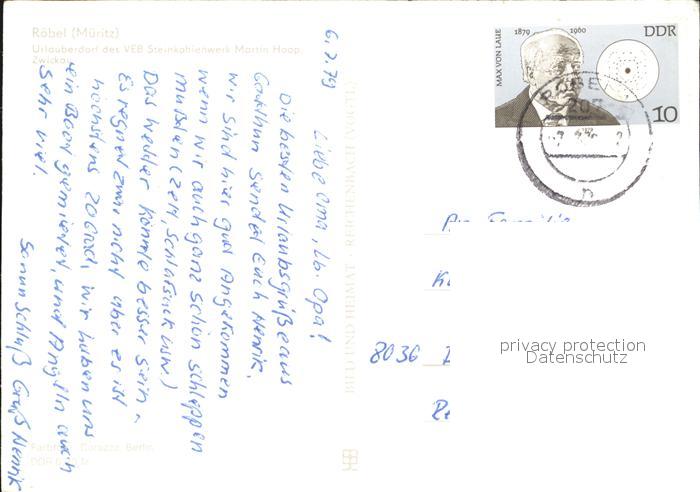 Röbel (Müritz)
Urlauberdorf des VEB Steinkohlenwerk Martin Hoop,
Zwickau
6.7.79
Liebe Oma, Lb. Opa!
Die besten Urlaubsgrüße aus
sendet Euch Henrik.
Wir sind hier gut Angekommen
wenn wir auch ganz schön schleppen
mußten (Zelt, Schlafsäcke usw)
Das Wetter könnte besser sein,
Es regnet zwar nicht aber es ist
höchstens 20 Grad, wir haben uns
ein Boot gemietet, und Angeln auch
sehr viel.
so nun Schluß Gruß Henrik
BILD UND HEIMAT · REICHENBACH
Berlin
MAX VON LAUE
1879 1960
DDR
10
8036
privacy protection
Datenschutz